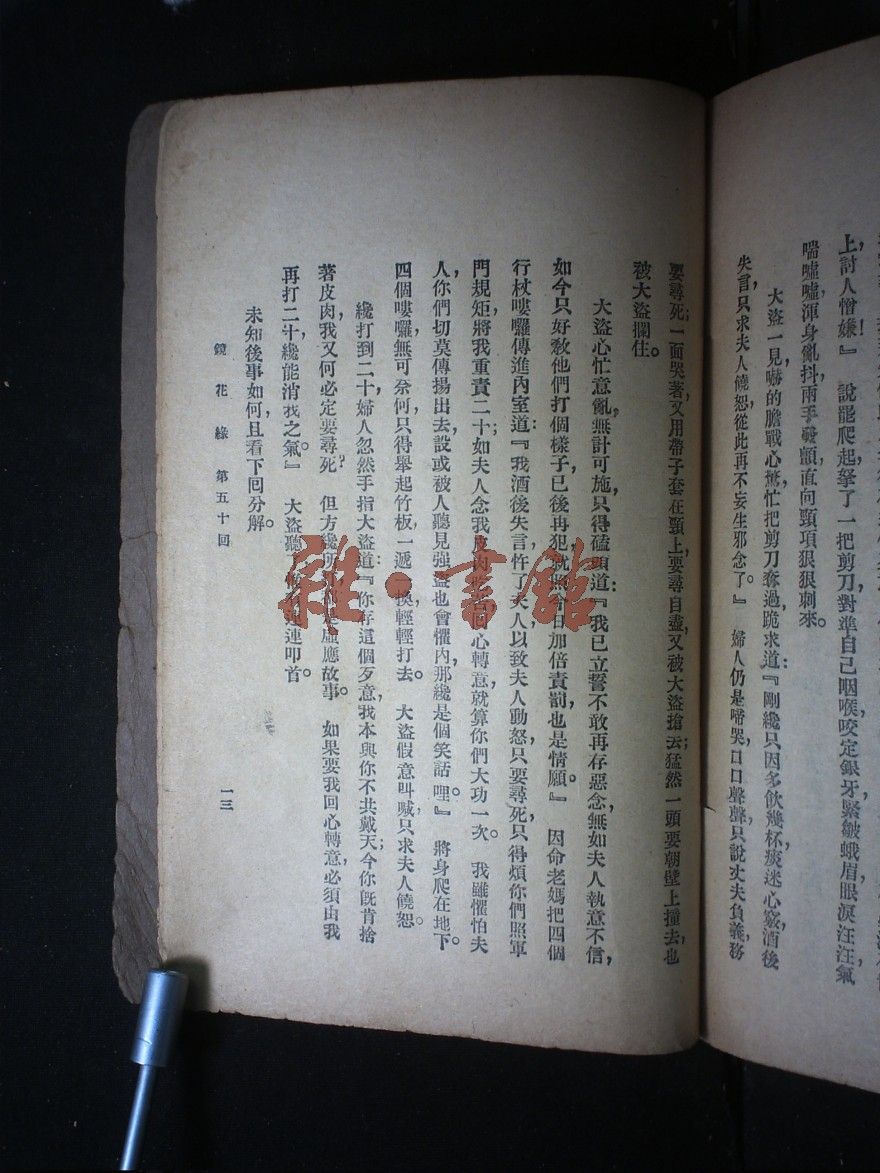 上，討人憎嫌！』　說罷爬起拏了一把剪刀，對準自己咽喉，咬定銀牙，緊皺蛾眉，眼淚汪汪，氣
喘噓噓，渾身亂抖，兩手發顫，直向頸項狠狠刺來。
大盜一見，嚇的膽戰心驚，忙把剪刀奪過，跪求道：『剛纔只因多飲幾杯，痰迷心竅，酒後
失言，只求夫人饒恕，從此再不妄生邪念了。』　婦人仍是啼哭，口口聲聲，只說丈夫負義，務
要尋死；一面哭著，又用帶子套在頸上，要尋自盡，又被大盜搶去；猛然一頭要朝壁上撞去，也
被大盜攔住。
大盜心忙意亂，無計可施，只得磕頭道：『我已立誓不敢再存惡念，無如夫人執意不信，
如今只好教他們打個樣子，已後再犯，就照今日加倍責罰，也是情願。』　因命老媽把四個
行杖嘍囉傳進內室道：『我酒後失言，忤了夫人，以致夫人動怒，只要尋死，只得煩你們照軍
門規矩，將我重責二十；如夫人念我皮肉吃苦，回心轉意，就算你們大功一次。　我雖懼怕夫
人，你們切莫傳揚出去，設或被人聽見强盜也會懼內，那纔是個笑話哩。』　將身爬在地下。
四個嘍囉無可奈何，只得舉起竹板，一遞一換，輕輕打去。　大盜假意叫喊，只求夫人饒恕。
纔打到二十，婦人忽然手指大盜道：『你存這個歹意，我本與你不共戴天；今你旣肯捨
著皮肉，我又何必定要尋死？　但方纔所打都是虛應故事。　如果要我回心轉意，必須由我
再打二十，纔能消我之氣。』　大盜聽　連連叩首。
未知後事如何，且看下回分解。
鏡花緣　第五十回
一三
雜·書館